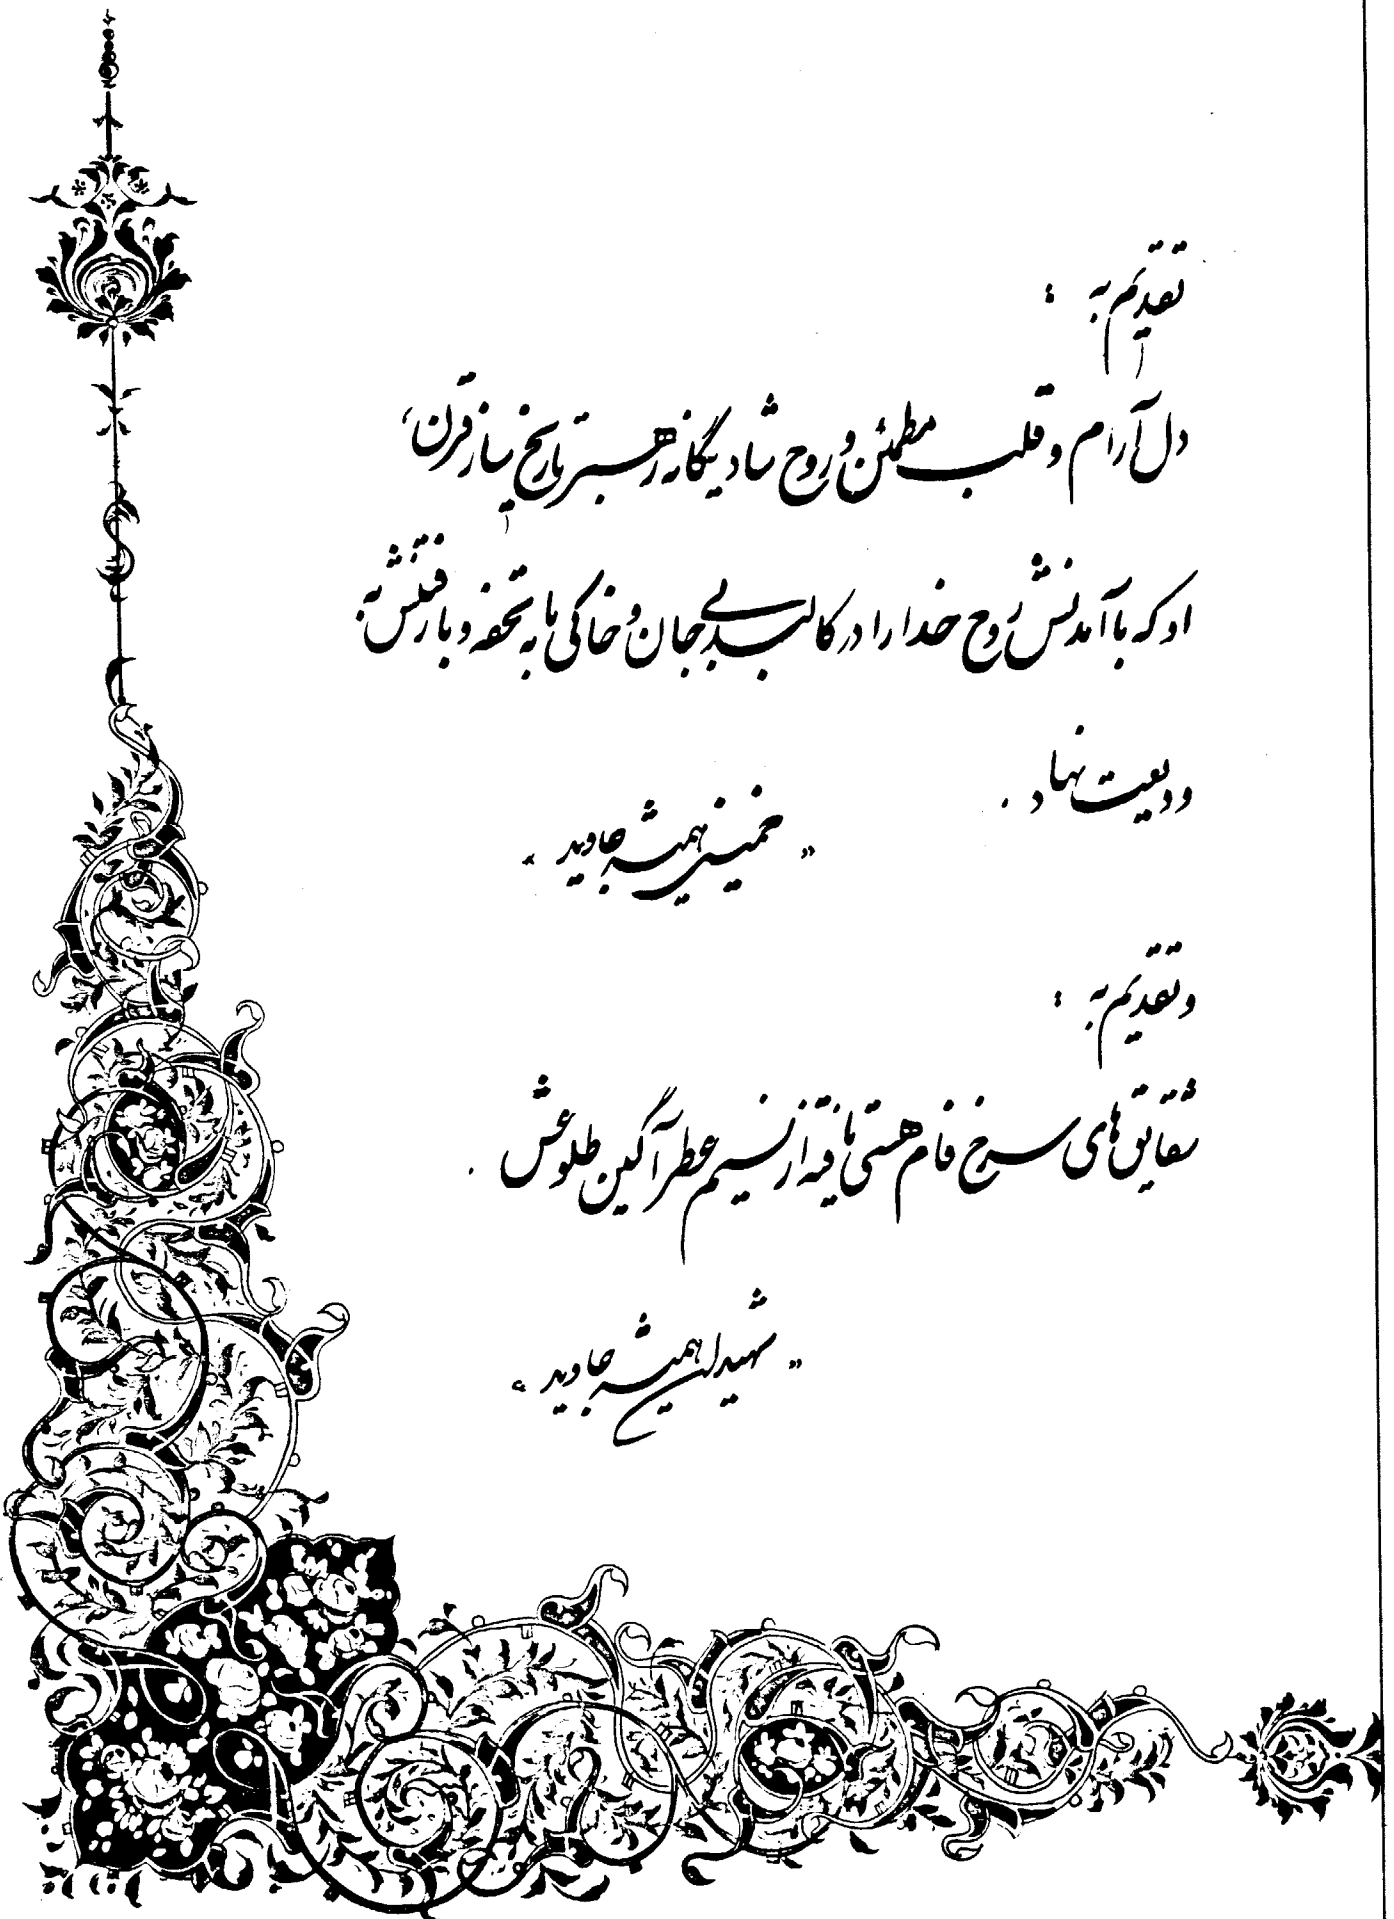 تقدیم به :
دل آرام و قلب مطمئن و روح شاد یگانه رهبر تاریخ ساز قرن،
او که با آمدنش روح خدا را در کالبد بی جان و خاکی ما به تحفه و با رفتنش به
ودیعت نهاد .
"خمینی همیشه جاوید"
و تقدیم به :
شقایق های سرخ فام هستی یافته از نسیم عطرآگین طلوعش .
"شهیدان همیشه جاوید"